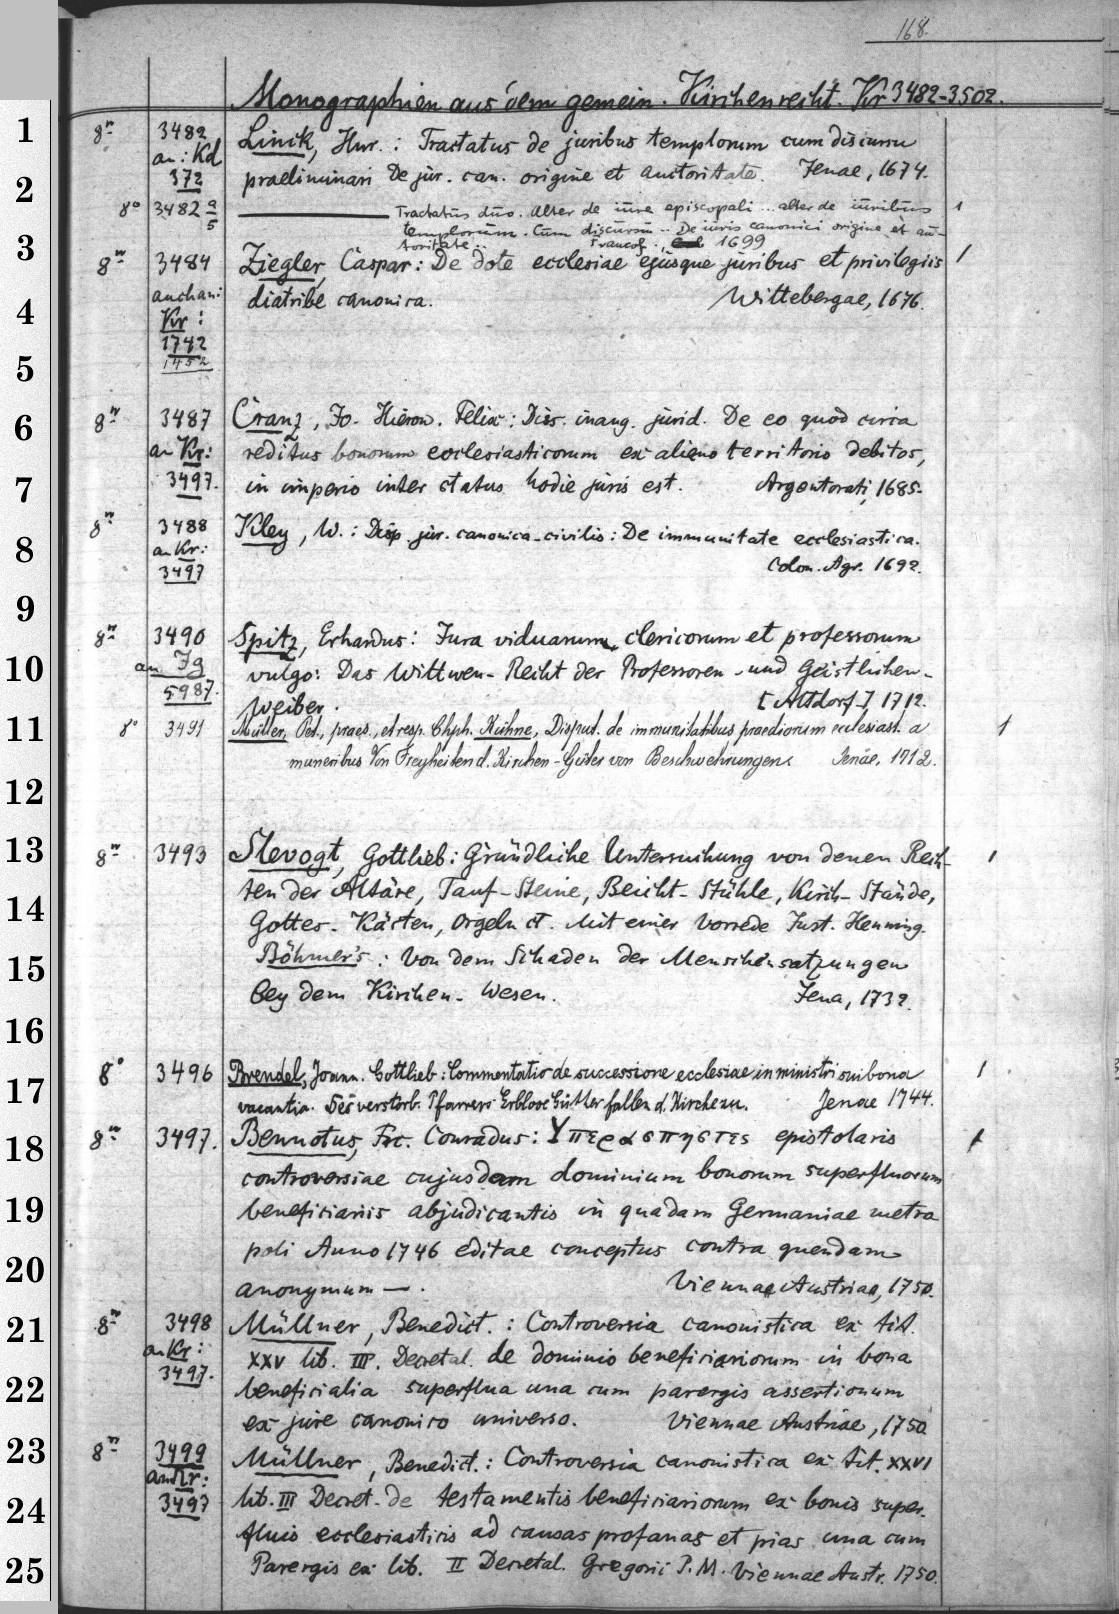 168.
Monographien aus dem gemein. Kirchenrecht. Kr 3482-3502.
1
8° 3482 Linck, Hnr. : Tractatus de juribus templorum cum discursu
an: Kd
372 praeliminari De jur. can. origine et auctoritate. Jenae, 1674.
2
8° 3482 a/5 ——— Tractatus duo. Alter de iure episcopali ... alter de iuribus 1
templorum. Cum discursu .. De iuris canonici origine et au-
toritate .. Francof., 1699
3
8° 3484 Ziegler, Caspar: De dote ecclesiae ejusque juribus et privilegiis 1
auch an: diatribe canonica. Wittebergae, 1676.
4
Kr :
1742
1452
5
6
8° 3487 Cranz, Jo. Hieron. Felix: Diss. inaug. jurid. De eo quod circa
an Kr: reditus bonorum ecclesiasticorum ex alieno territorio debitos,
7
3497. in imperio inter status hodie juris est. Argentorati, 1685.
8° 3488 Kley, W. : Disp. jur. canonica-civilis: De immunitate ecclesiastica.
8
an Kr:
3497 Colon. Agr. 1692.
9
8° 3490 Spitz, Erhardus: Jura viduarum, clericorum et professorum
10
an Jg vulgo: Das Wittwen-Recht der Professoren- und Geistlichen-
5987. Weiber. [Altdorf] 1712.
11
8° 3491 Müller, Pet., praes., et resp. Chph. Kühne, Disput. de immunitatibus praediorum ecclesiast. a 1
muneribus Von Freyheiten d. Kirchen-Güter von Beschwehrungen. Jenae, 1712.
12
13
8° 3493 Slevogt, Gottlieb: Gründliche Untersuchung von denen Rech- 1
ten der Altäre, Tauf-Steine, Beicht-Stühle, Kirch-Stände,
14
Gottes-Kästen, Orgeln ct. Mit einer Vorrede Just. Henning.
15
Böhmer's : Von dem Schaden der Menschensatzungen
bey dem Kirchen-Wesen. Jena, 1732.
16
8° 3496 Brendel, Joann. Gottlieb: Commentatio de successione ecclesiae in ministri sui bona 1
17
vacantia. Des verstorb. Pfarrers Erblose Gütter fallen d. Kirche zu. Jenae 1744.
18
8° 3497. Bennotus, Frc. Conradus: Υπερασπηστες epistolaris 1
controversiae cujusdam dominium bonorum superfluorum
19
beneficiariis abjudicantis in quadam Germaniae metro
poli Anno 1746 editae conceptus contra quendam
20
anonymum —. Viennae Austriae, 1750.
21
8° 3498 Müllner, Benedict. : Controversia canonistica ex tit.
an Kr: XXV lib. III. Decretal. de dominio beneficiariorum in bona
3497.
22
beneficialia superflua una cum parergis assertionum
ex jure canonico universo. Viennae Austriae, 1750
23
8° 3499 Müllner, Benedict. : Controversia canonistica ex tit. XXVI
an Kr:
24
3497 lib. III Decret. de testamentis beneficiariorum ex bonis super-
fluis ecclesiasticis ad causas profanas et pias una cum
25
Parergis ex lib. II Decretal. Gregorii P. M. Viennae Austr. 1750.